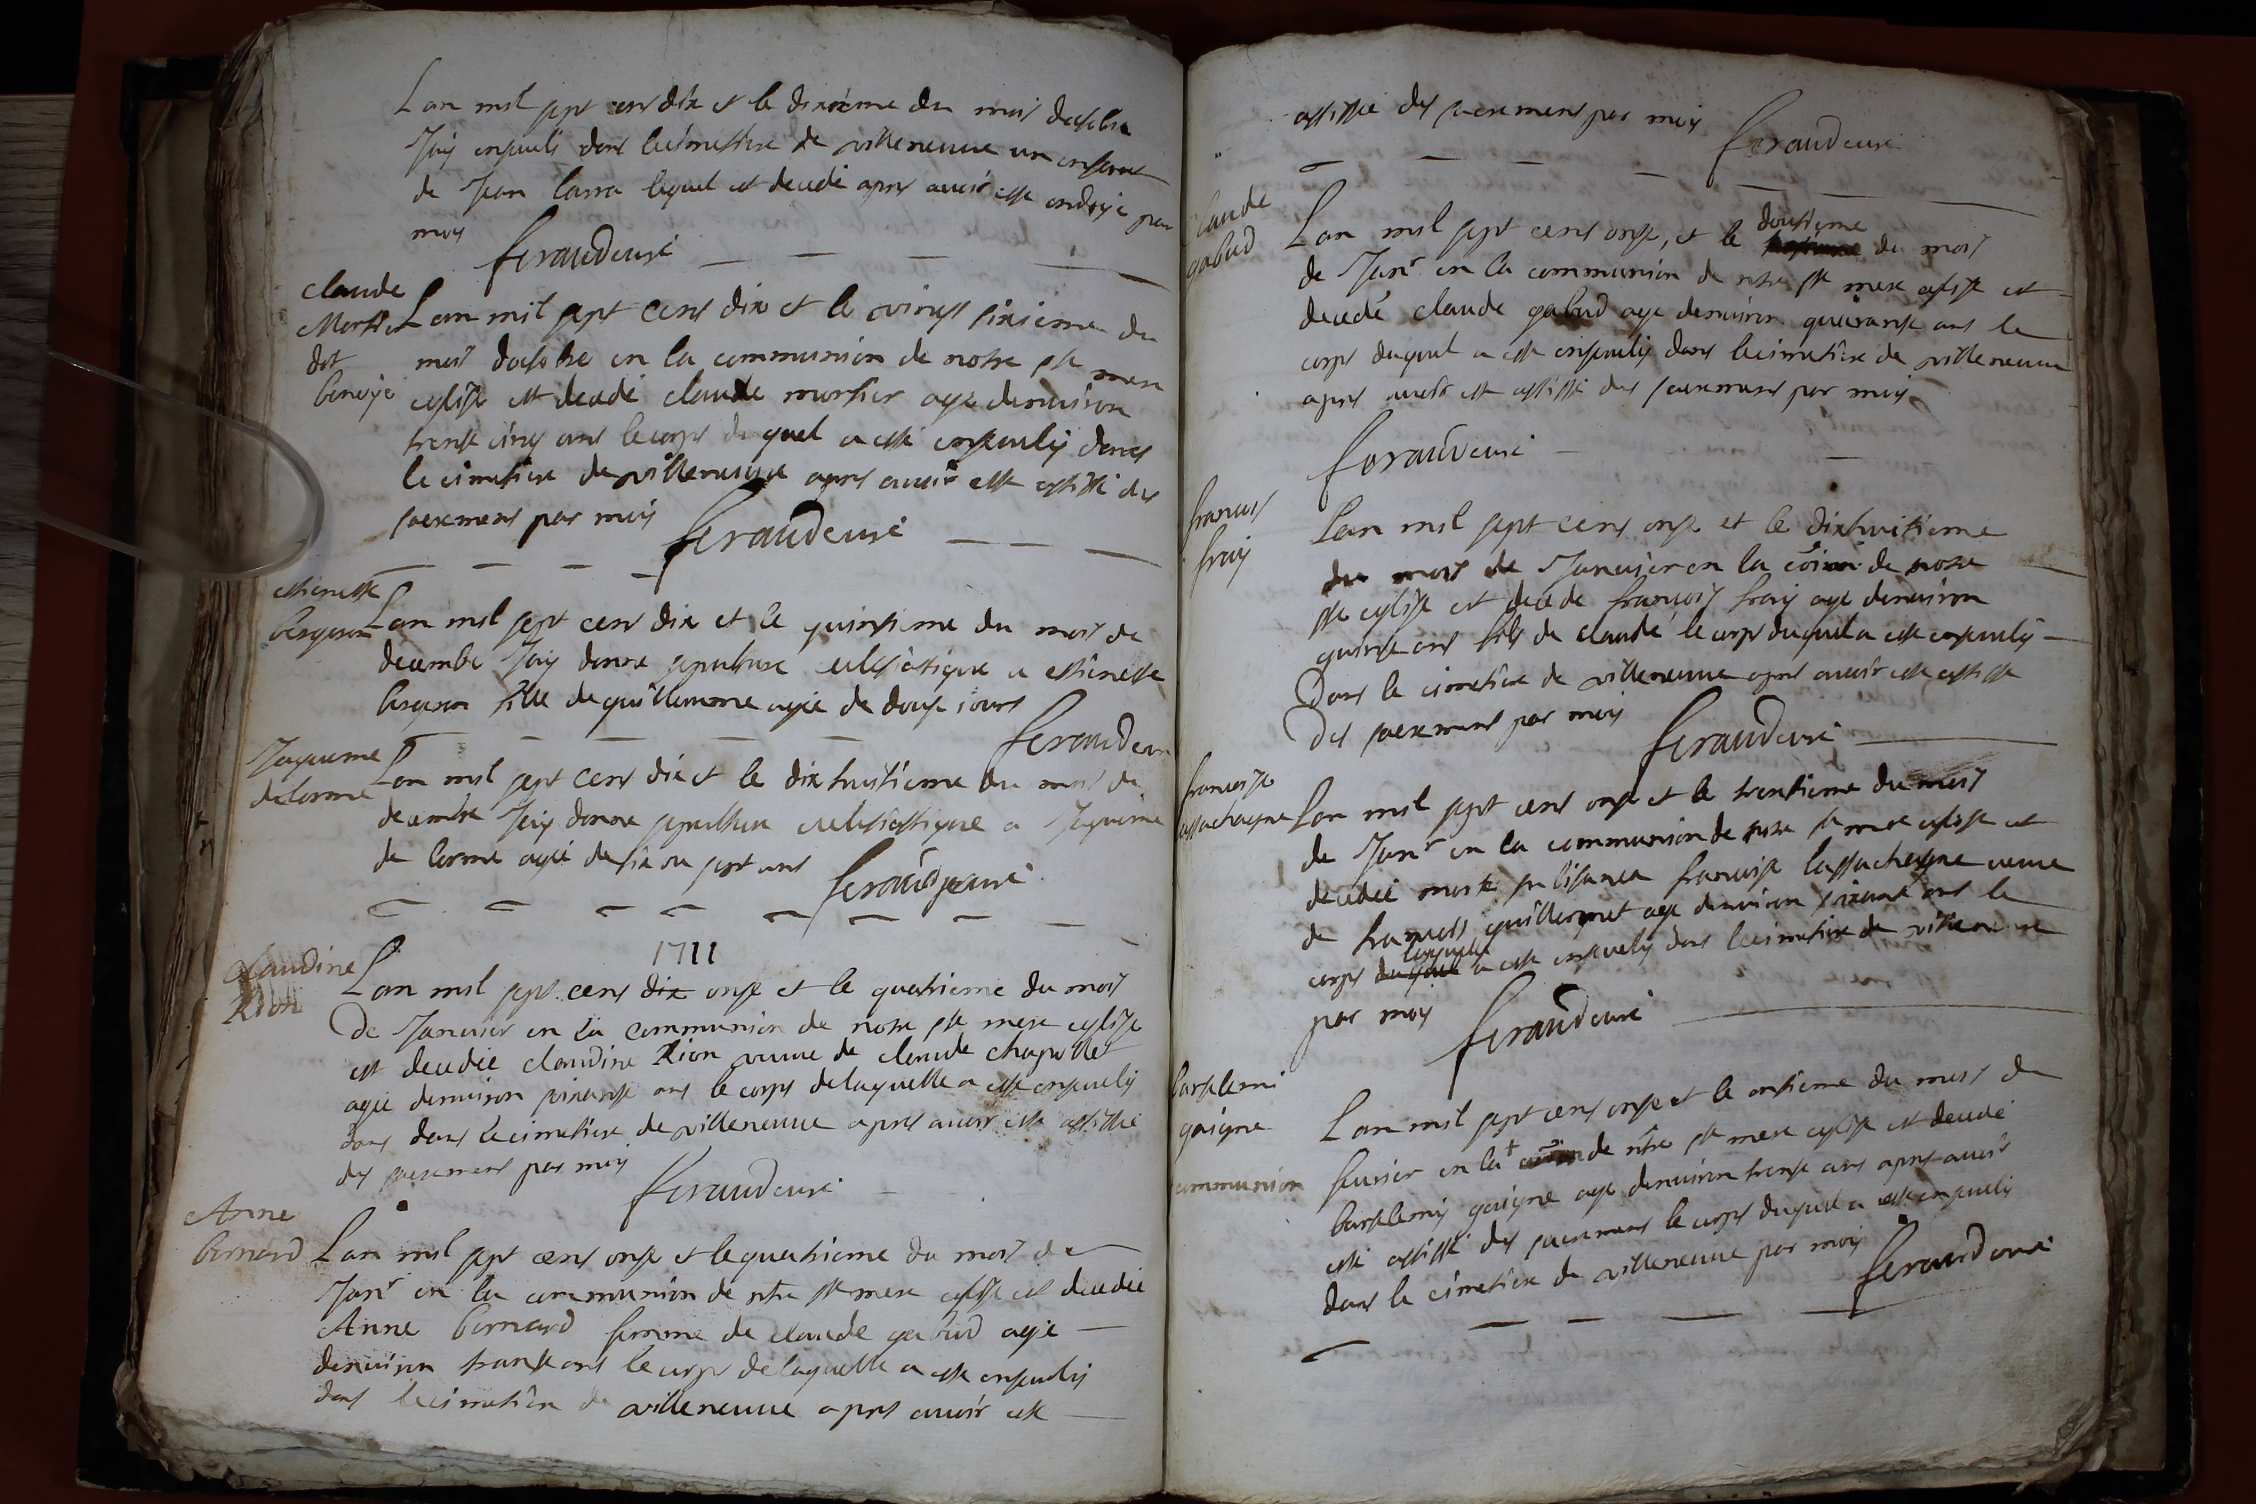 Lan mil sept cens dix et le dixieme du mois doctobre
Jay enseveli dans le cimetiere de villeneuve un enfant
de Jean Larra lequel est decedé apres avoir esté ondoyé par
moy
feraud curé
claude
Mortier
dit
benoye
Lan mil sept cens dix et le vingt sixieme du
mois doctobre en la communion de nostre ste mere
eglise est decedé claude mortier age denviron
trente cinq ans le corps du quel a esté ensevely dans
le cimetiere de villeneuve apres avoir esté assisté des
sacremens par moy
feraud curé
estienette
bergeron
Lan mil sept cens dix et le quinsieme du mois de
decembre Jay donne sepulture eclesiastique a estienette
bergeron fille de guillemme agée de douse jours
feraud curé
Jaqueme
delorme
Lan mil sept cens dix et le dix huitieme du mois de
decembre Jay donne sepulture eclesiastique a Jaqueme
de lorme agée de six ou sept ans
feraud curé
1711
claudine
Rion
Lan mil sept cens dix onse et le quatrieme du mois
de Janvier en la communion de nostre ste mere eglise
est decedée claudine Rion veuve de claude chapollet
agée denviron soixante ans le corps de laquelle a esté ensevely
dans dans le cimetiere de villeneuve apres avoir esté assistée
des sacremens par moy
feraud curé
Anne
bernard
Lan mil sept cens onse et le quatrieme du mois de
Janr en la communion de ntre ste mere eglise est decedée
Anne bernard femme de claude gabud agée
denviron trante ans le corps de laquelle a esté ensevely
dans le cimetiere de villeneuve apres avoir esté
assistée des sacremens par moy
feraud curé
claude
gabud
Lan mil sept cens onse, et le dousieme du mois
de Janr en la communion de ntre ste mere eglise est
decedé claude gabud age denviron quarante ans le
corps duquel a esté ensevely dans le cimetiere de villeneuve
apres avoir esté assisté des sacremens par moy
feraud curé
francois
fray
Lan mil sept cens onse et le dixhuitieme
du mois de Janvier en la coion de nostre
ste eglise est decedé francois fray age denviron
quinse ans fils de claude le corps duquel a esté ensevely
dans le cimetiere de villeneuve apres avoir esté assisté
des sacremens par moy
feraud curé
francoise
lassachagne
Lan mil sept cens onse et le trentieme du mois
de Janr en la communion de nostre ste mere eglise est
decedée francoise lassachagne veuve
de francois guillermet age denviron soixante ans le
corps duquel laquelle a esté ensevely dans le cimetiere de villeneuve
par moy
feraud curé
bartelemi
gaigne
Lan mil sept cens onse et le onsieme du mois de
fevrier en la + coion de ntre ste mere eglise est decedé
communion
bartelemy gaigne age denviron trente ans apres avoir
esté assisté des sacremens le corps duquel a esté ensevely
dans le cimetiere de villeneuve par moy
feraud curé